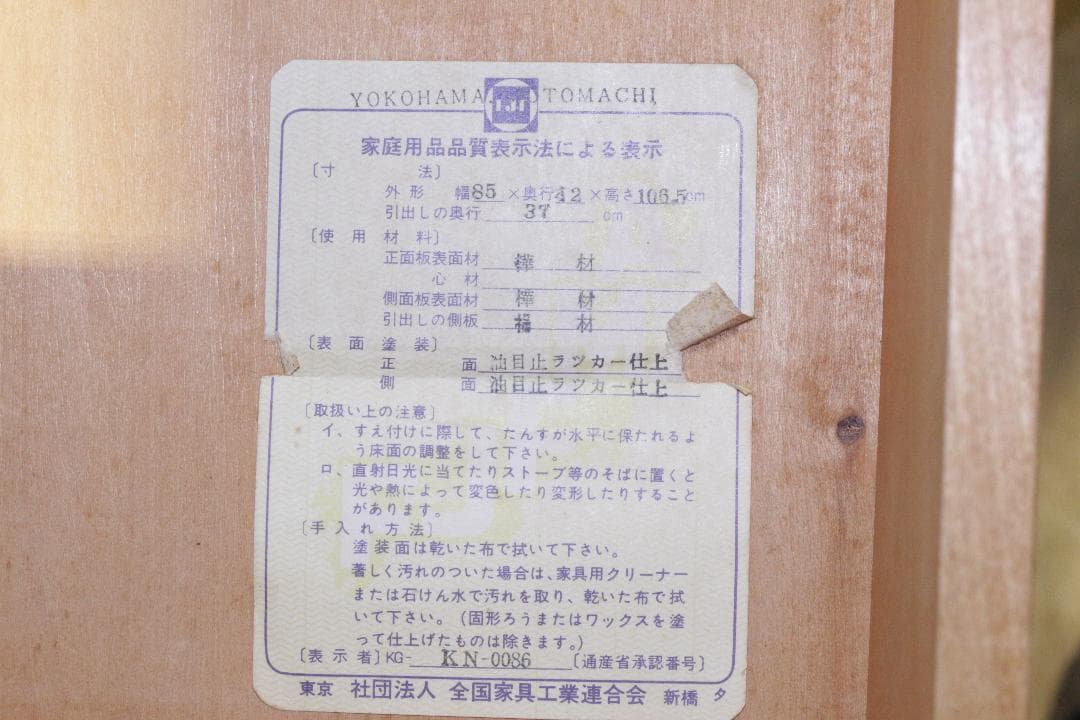 YOKOHAMA MOTOMACHI
家庭用品品質表示法による表示
〔寸 法〕
外形 幅85×奥行42×高さ106.5cm
引出しの奥行 37 cm
〔使用材料〕
正面板表面材 樺 材
心材
側面板表面材 樺 材
引出しの側板 材
〔表面塗装〕
正 面 油目止ラツカー仕上
側 面 油目止ラツカー仕上
〔取扱い上の注意〕
イ、すえ付けに際して、たんすが水平に保たれるよ
う床面の調整をして下さい。
ロ、直射日光に当てたりストーブ等のそばに置くと
光や熱によって変色したり変形したりすること
があります。
〔手入れ方法〕
塗装面は乾いた布で拭いて下さい。
著しく汚れのついた場合は、家具用クリーナー
または石けん水で汚れを取り、乾いた布で拭
いて下さい。(固形ろうまたはワックスを塗
って仕上げたものは除きます。)
〔表示者〕KG- KN-0086 〔通産省承認番号〕
東京 社団法人 全国家具工業連合会 新橋 タ